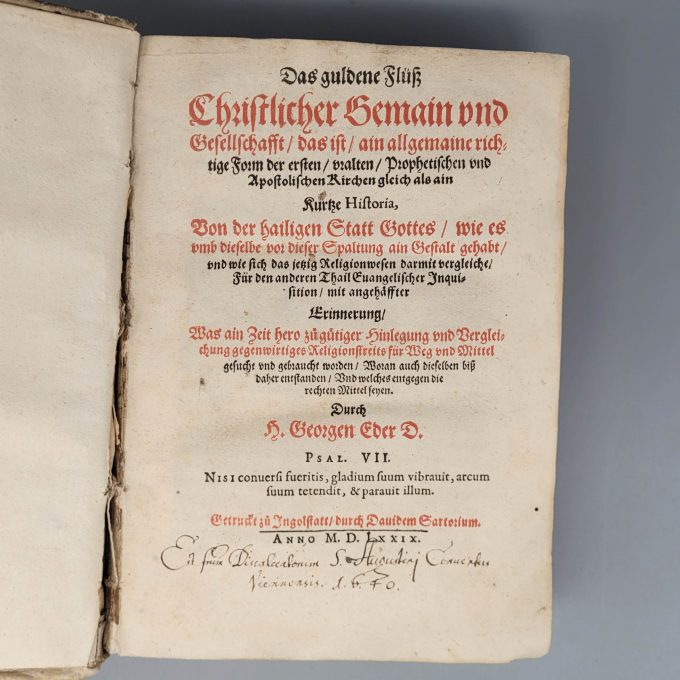 Das guldene Flüß
Christlicher Gemain vnd
Gesellschafft / das ist / ain allgemaine rich-
tige Form der ersten / vralten / Prophetischen vnd
Apostolischen Kirchen gleich als ain
Kurtze Historia,
Von der hailigen Statt Gottes / wie es
vmb dieselbe vor dieser Spaltung ain Gestalt gehabt /
vnd wie sich das jetzig Religionwesen darmit vergleiche /
Für den anderen Thail Euangelischer Inqui-
sition / mit angehäffter
Erinnerung /
Was ain Zeit hero zů gütiger Hinlegung vnd Verglei-
chung gegenwirtiges Religionstreits für Weg vnd Mittel
gesucht vnd gebraucht worden / Woran auch dieselben biß
daher entstanden / Vnd welches entgegen die
rechten Mittel seyen.
Durch
H. Georgen Eder D.
PSAL. VII.
NISI conuersi fueritis, gladium suum vibrauit, arcum
suum tetendit, & parauit illum.
Getruckt zů Ingolstatt / durch Dauidem Sartorium.
ANNO M. D. LXXIX.
Discalceatorum S. Augustini Conuentus
Viennensis. 1640.